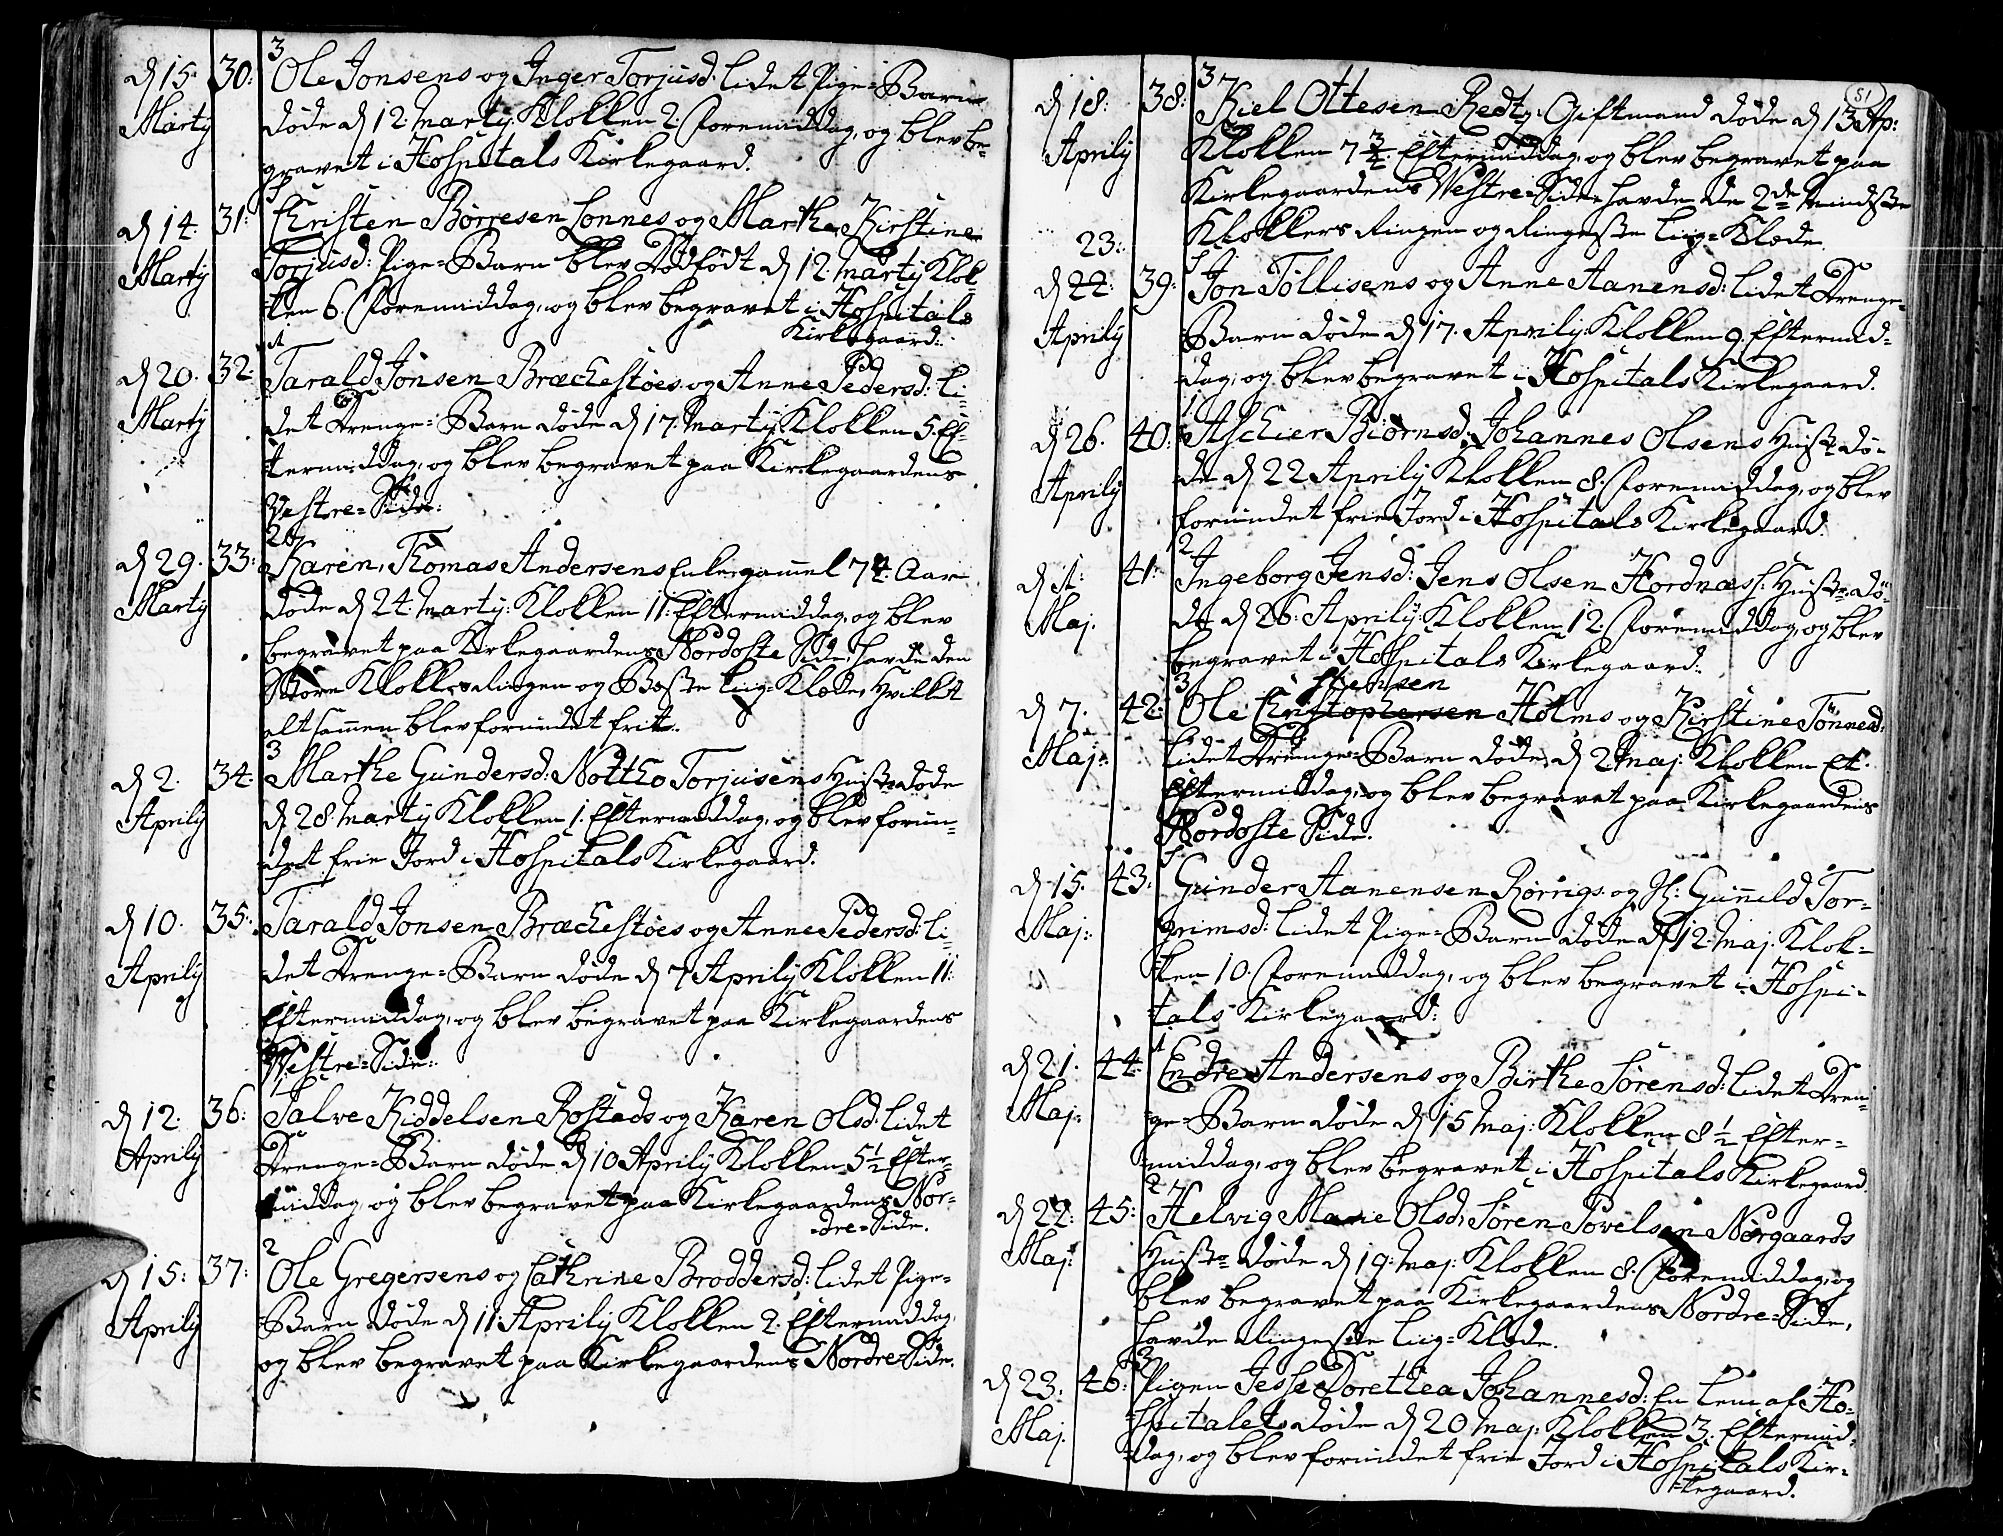 3
d 15. 30: Ole Jonsens og Inger Torjusd: lidet Pige-Barn
Marty døde d 12 Marty: Klokken 2. Formiddag, og blev be-
gravet i Hospitals Kirkegaard.
d 14. 31: Christen Børresen Lonnes og Marthe Kirstine
Marty Torjusd: Pige-Barn blev Dødfødt d 12 Marty Klok-
ken 6. Formiddag, og blev begravet i Hospitals
Kirkegaard.
d 20. 32: Tarald Jonsen Brækestøes og Anne Pedersd: li-
Marty det Drenge-Barn døde d 17. Marty Klokken 5. Ef-
termiddag, og blev begravet paa Kirkegaardens
Vestre-Side.
d 29. 33: Karen, Thomas Andersens Enke gammel 74. Aar
Marty døde d 24. Marty: Klokken 11. Eftermiddag, og blev
begravet paa Kirkegaardens Nordoste Side, havde den
Store Klokkes Ringen og Beste Liig-Klæde, hvilket
alt sammen blev forundet frit.
3
d 2. 34: Marthe Gundersd: Nottho Torjusens Hustr: døde
Aprily d 28. Marty Klokken 1. Eftermiddag, og blev forun-
det frie Jord i Hospitals Kirkegaard.
d 10. 35: Tarald Jonsen Brækestøes og Anne Pedersd: li-
Aprily det Drenge-Barn døde d 7 Aprily Klokken 11.
Eftermiddag, og blev begravet paa Kirkegaardens
Vestre-Side.
1
d 12. 36: Salve Kiddelsen Rostads og Karen Olsd: lidet
Aprily Drenge-Barn døde d 10 Aprily Klokken 5½ Efter-
middag, og blev begravet paa Kirkegaardens Nor-
dre-Side.
2
d 15: 37: Ole Gregersens og Cathrine Broddersd: lidet Pige-
Aprily Barn døde d 11 Aprily Klokken 2. Eftermiddag,
og blev begravet paa Kirkegaardens Nordre-Side.
51
3
d 18: 38: Kiel Ottesen Redty Giftmand døde d 13 Ap:
Aprily Klokken 7 3/4. Eftermiddag, og blev begravet paa
Kirkegaardens Vestre-Side, havde de 2de Mindste
Klokkers Ringen og Ringeste Liig-Klæde.
23:
d 22: 39: Jon Tollisens og Anne Aanensd: lidet Drenge-
Aprily Barn døde d 17. Aprily Klokken 9. Eftermid-
dag, og blev begravet i Hospitals Kirkegaard.
1
d 26. 40: Aschier Biørnsd: Johannes Olsens Hustr: dø-
Aprily de d 22 Aprily Klokken 8. Formiddag, og blev
forundet frie Jord i Hospitals Kirkegaard.
2
d 1: 41: Ingeborg Jensd: Jens Olsen Hordnæs's Hustr: dø-
Maj. de d 26. Aprily: Klokken 12. Formiddag, og blev
begravet i Hospitals Kirkegaard.
3
d 7. 42: Ole Christophersen Holms og Kirstine Tønnesd:
Maj: lidet Drenge-Barn døde, d 2 Maj: Klokken Et.
Eftermiddag, og blev begravet paa Kirkegaardens
Nordoste Side.
d 15. 43: Gunder Aanensen Rørrigs og Gunild Tor-
Maj: grimsd: lidet Pige-Barn døde d 12. Maj: Klok-
ken 10. Formiddag, og blev begravet i Hospi-
tals Kirkegaard:
d 21: 44: Endre Andersens og Birthe Sørensd: lidet Dren-
Maj: ge-Barn døde d 15 Maj: Klokken 8½ Efter-
middag, og blev begravet i Hospitals Kirkegaard.
2
d 22: 45: Helvig Marie Olsd: Søren Povelsen Nørgaards
Maj: Hustr: døde d 19. Maj: Klokken 8. Formiddag, og
blev begravet paa Kirkegaardens Nordre-Side,
havde Ringeste Liig-Klæde.
3
d 23. 46: Pigen Jesse Dorethea Johannesd: En Lem af Ho-
Maj. spitalet døde d 20 Maj: Klokken 3. Eftermid-
dag, og blev forundet frie Jord i Hospitals Kir-
kegaard.